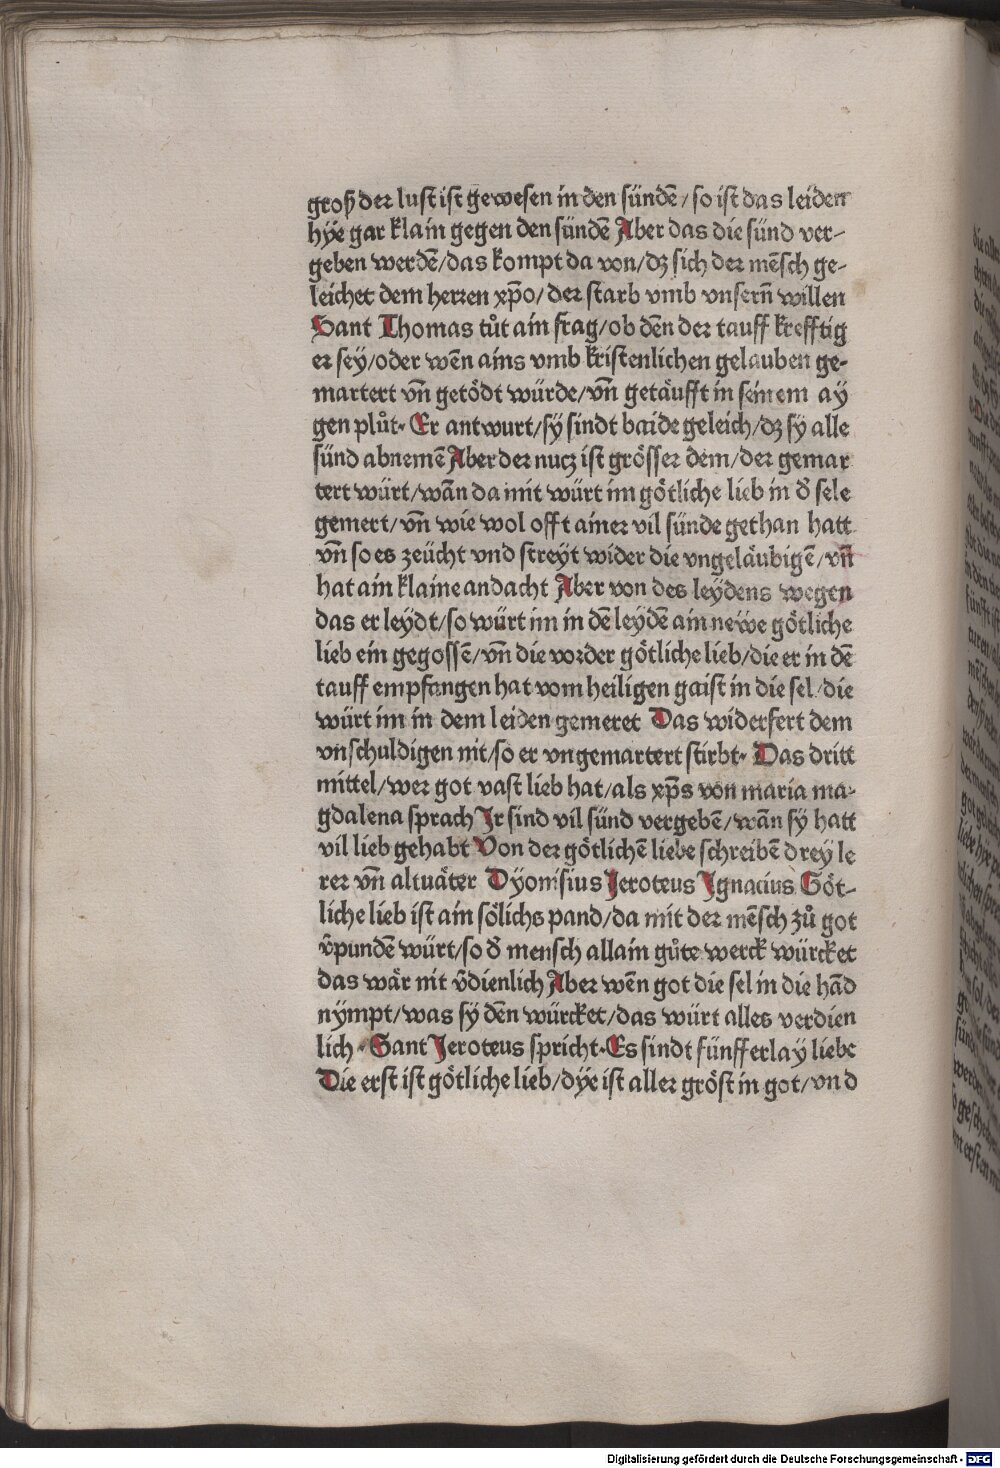 groß der lust ist gewesen in den sündē/so ist das leiden
hye gar klain gegen den sündē Aber das die sünd ver-
geben werdē/das kompt da von/dz sich der mēsch ge-
leichet dem herren xp̄o/der starb vmb vnsern̄ willen
Sant Thomas tůt ain frag/ob dēn der tauff krefftig
er sey/oder wēn ains vmb kristenlichen gelauben ge-
martert vn̄ getödt würde/vn̄ getäufft in seinem ay
gen plůt· Er antwurt/sy sindt baide geleich/dz sy alle
sünd abnemē Aber der nucz ist grösser dem/der gemar
tert würt/wān da mit würt im götliche lieb in d̄ sele
gemert/vn̄ wie wol offt ainer vil sünde gethan hatt
vn̄ so es zeücht vnd streyt wider die vngeläubigē/vn̄
hat ain klaine andacht Aber von des leydens wegen
das er leydt/so würt im in dē leydē ain newe götliche
lieb ein gegossē/vn̄ die vorder götliche lieb/die er in dē
tauff empfangen hat vom heiligen gaist in die sel/die
würt im in dem leiden gemeret Das widerfert dem
vnschuldigen nit/so er vngemartert stirbt· Das dritt
mittel/wer got vast lieb hat/als xp̄s von maria ma-
gdalena sprach Jr sind vil sünd vergebē/wān sy hatt
vil lieb gehabt Von der götlichē liebe schreibē drey le
rer vn̄ altuäter Dyonisius Jeroteus Jgnacius Göt-
liche lieb ist ain sölichs pand/da mit der mēsch zů got
v̄pundē würt/so d̄ mensch allain gůte werck würcket
das wär nit v̄dienlich Aber wēn got die sel in die hād
nympt/was sy dēn würcket/das würt alles verdien
lich · Sant Jeroteus spricht·Es sindt fünfferlay liebe
Die erst ist götliche lieb/dye ist aller gröst in got/vnd
Digitalisierung gefördert durch die Deutsche Forschungsgemeinschaft - DFG